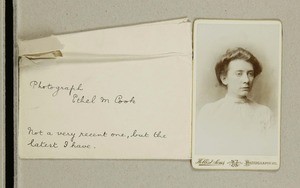 Photograph
Ethel M Cook
Not a very recent one, but the
latest I have.